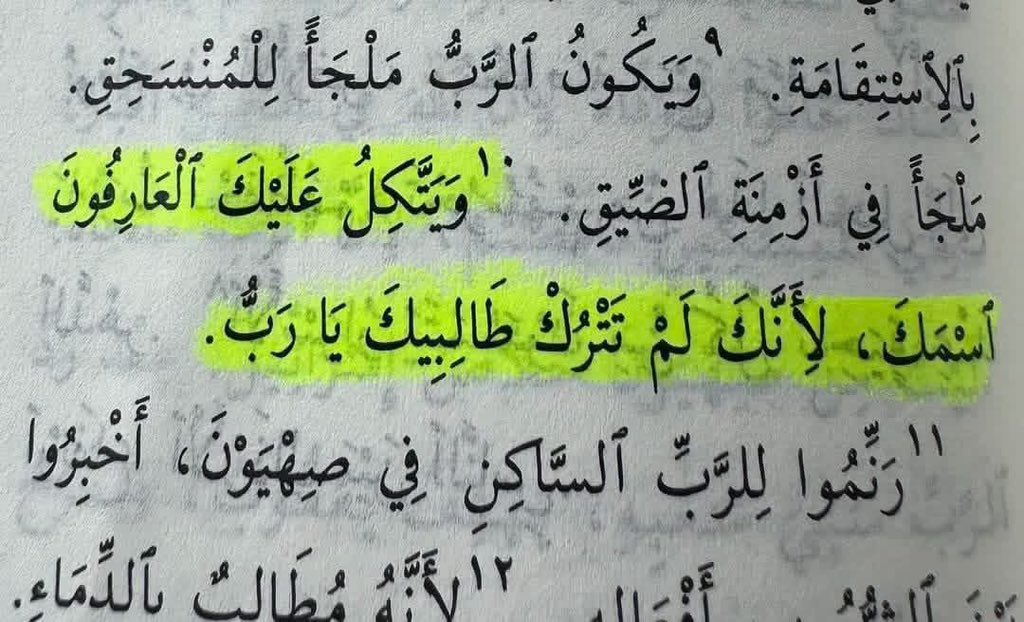 بِٱلِٱسْتِقَامَةِ. ٩ وَيَكُونُ ٱلرَّبُّ مَلْجَأً لِلْمُنْسَحِقِ.
مَلْجَأً فِي أَزْمِنَةِ ٱلضِّيقِ. ١٠ وَيَتَّكِلُ عَلَيْكَ ٱلْعَارِفُونَ
ٱسْمَكَ، لِأَنَّكَ لَمْ تَتْرُكْ طَالِبِيكَ يَا رَبُّ.
١١ رَنِّمُوا لِلرَّبِّ ٱلسَّاكِنِ فِي صِهْيَوْنَ، أَخْبِرُوا
١٢ لِأَنَّهُ مُطَالِبٌ بِٱلدِّمَاءِ.